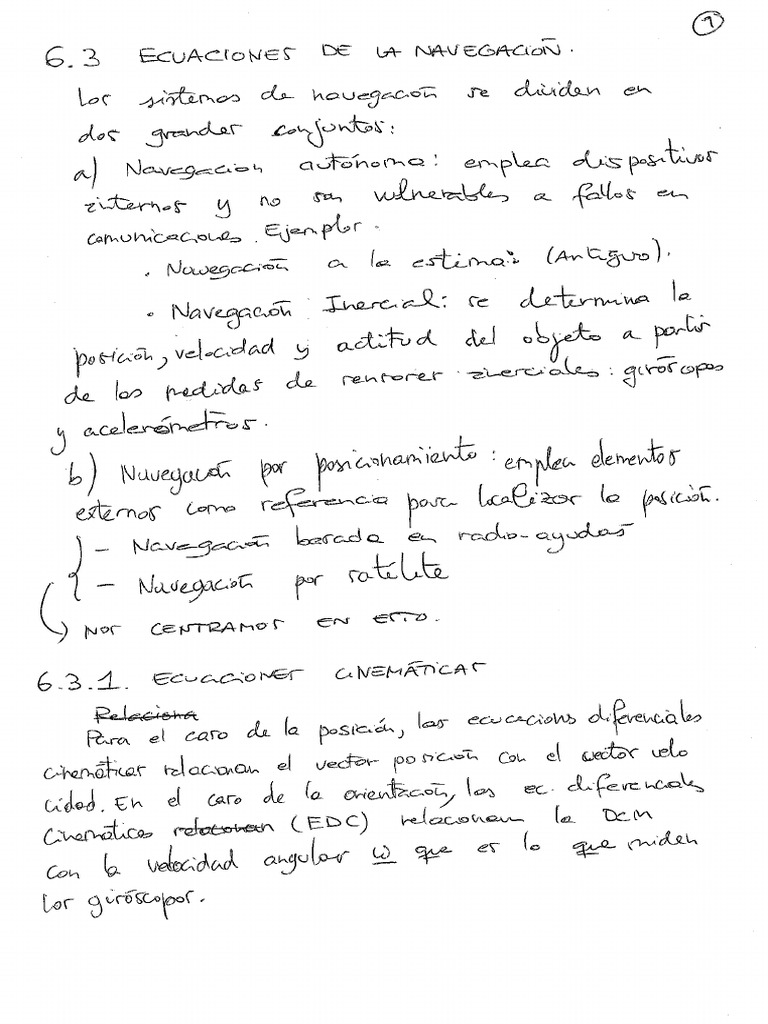 9
6.3 ECUACIONES DE LA NAVEGACIÓN.
Los sistemas de navegación se dividen en
dos grandes conjuntos:
a) Navegacion autónoma: emplea dispositivos
internos y no son vulnerables a fallos en
comunicaciones. Ejemplos.
. Navegación a la estima: (Antiguo).
. Navegación Inercial: se determina la
posición, velocidad y actitud del objeto a partir
de las medidas de sensores inerciales: giróscopos
y acelerómetros.
b) Navegación por posicionamiento: emplea elementos
externos como referencia para localizar la posición.
- Navegación basada en radio-ayudas
- Navegación por satélite
NOS CENTRAMOS EN ESTO.
6.3.1. ECUACIONES CINEMÁTICAS
Relaciona
Para el caso de la posición, las ecuacions diferenciales
cinemáticas relacionan el vector posición con el vector velo
cidad. En el caso de la orientación, las ec. diferenciales
Cinemáticas relacionan (EDC) relacionan la DCM
con la velocidad angular ω que es lo que miden
los giróscopos.